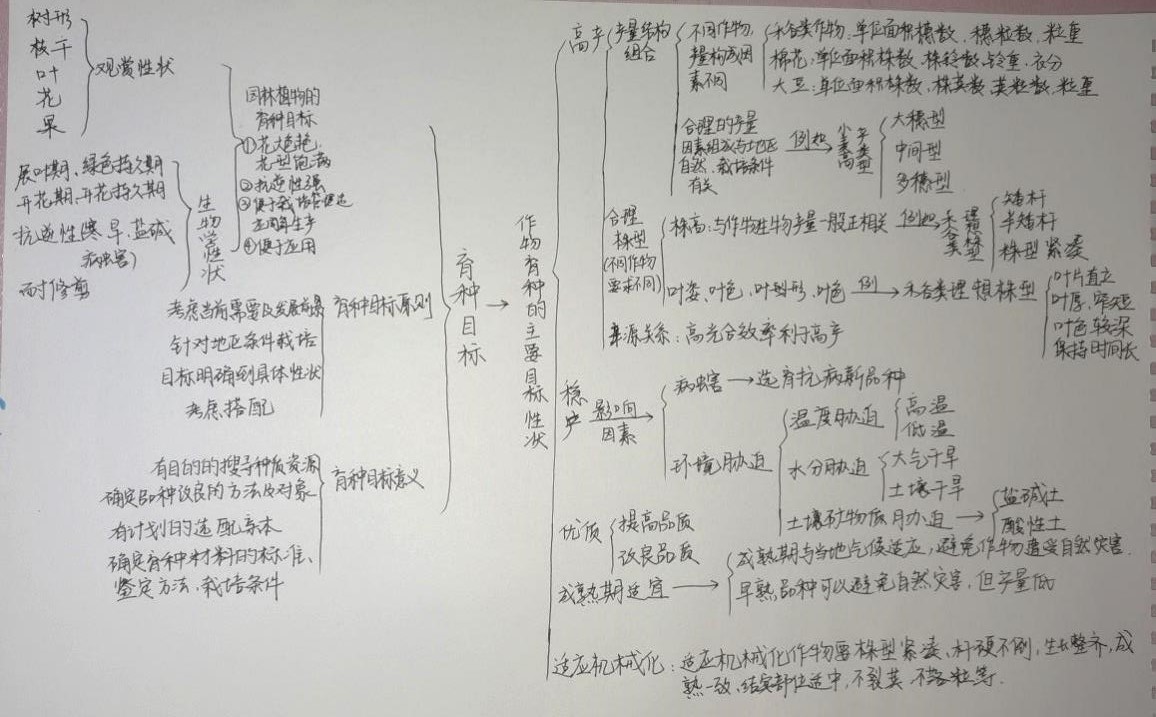 树形
枝干
叶
花
果
观赏性状
展叶期、绿色持久期
开花期、开花持久期
抗逆性(寒、旱、盐碱
病虫害)
耐修剪
生物学性状
园林植物的
育种目标
①花大色艳,
花型饱满
②抗逆性强
③便于栽培管理
周年生产
④便于应用
考虑当前需要及发展前景
针对地区条件栽培
目标明确到具体性状
考虑搭配
育种目标原则
有目的的搜寻种质资源
确定品种改良的方法及对象
有计划的选配亲本
确定育种材料的标准、
鉴定方法、栽培条件
育种目标意义
育种目标
作物育种的主要目标性状
高产
产量结构
组合
不同作物,
产量构成因
素不同
禾谷类作物:单位面积穗数、穗粒数、粒重
棉花:单位面积株数、株铃数、铃重、衣分
大豆:单位面积株数、株荚数、荚粒数、粒重
合理的产量
因素组成与地区
自然、栽培条件
有关
例如
小麦
高产
类型
大穗型
中间型
多穗型
合理
株型
(不同作物
要求不同)
株高:与作物生物产量一般正相关
例如
矮杆
半矮杆
株型紧凑
叶姿、叶色、叶型形、叶色
例
禾谷类理想株型
叶片直立
叶厚、窄短
叶色较深
保持时间长
库源关系:高光合效率利于高产
稳产
影响
因素
病虫害→选育抗病新品种
环境胁迫
温度胁迫
高温
低温
水分胁迫
大气干旱
土壤干旱
土壤矿物质胁迫→
盐碱土
酸性土
优质
提高品质
改良品质
成熟期适宜→
成熟期与当地气候适应,避免作物遭受自然灾害.
早熟品种可以避免自然灾害,但产量低
适应机械化:适应机械化作物要株型紧凑、杆硬不倒,生长整齐,成
熟一致、结实部位适中,不裂荚、不落粒等.